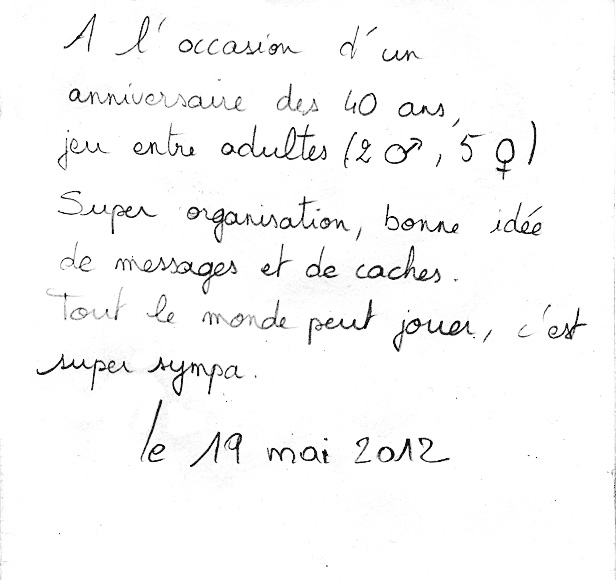 A l'occasion d'un
anniversaire des 40 ans,
jeu entre adultes (2 ♂, 5 ♀)
Super organisation, bonne idée
de messages et de caches.
Tout le monde peut jouer, c'est
super sympa.
le 19 mai 2012